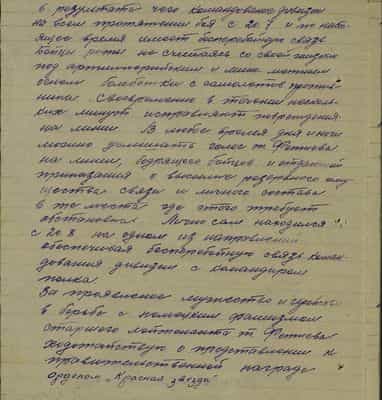 в результате чего командование дивизии
на всем протяжении боя с 20.7 и по наст-
ящее время имеет бесперебойную связь
бойцы роты не считаясь со своей жизнью
под артиллерийским и мино метным
огнем бомбежки с самолетов против-
ника Своевременно в течении несколь-
ких минут исправляют повреждения
на линии В любое время дня и ночи
можно услышать голос т. Фетисова
на линии, бодрящего бойцов и отдающий
приказания о высылке резервного иму
щества связи и личного состава
в те места где этого требует
обстановка Лично сам находился
с 20.8 на одном из направлений
обеспечивая бесперебойную связь коман-
дования дивизии с командиром
полка.
За проявленное мужество и геройство
в борьбе с немецким фашизмом
старшего лейтенанта т. Фетисова
ходатайствую о представлении к
правительственной награде
орденом „Красная звезда"